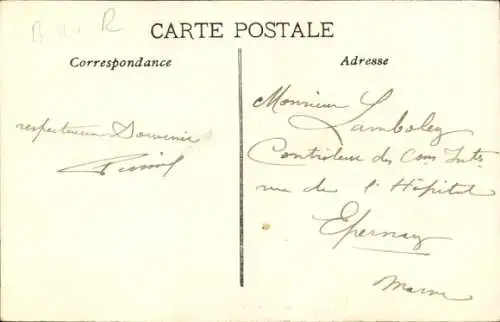 B R
CARTE POSTALE
Correspondance
Adresse
respectueux Souvenir
Monsieur Lamboley
Contrôleur des Con Inttes
rue de l'Hôpital
Epernay
Marne